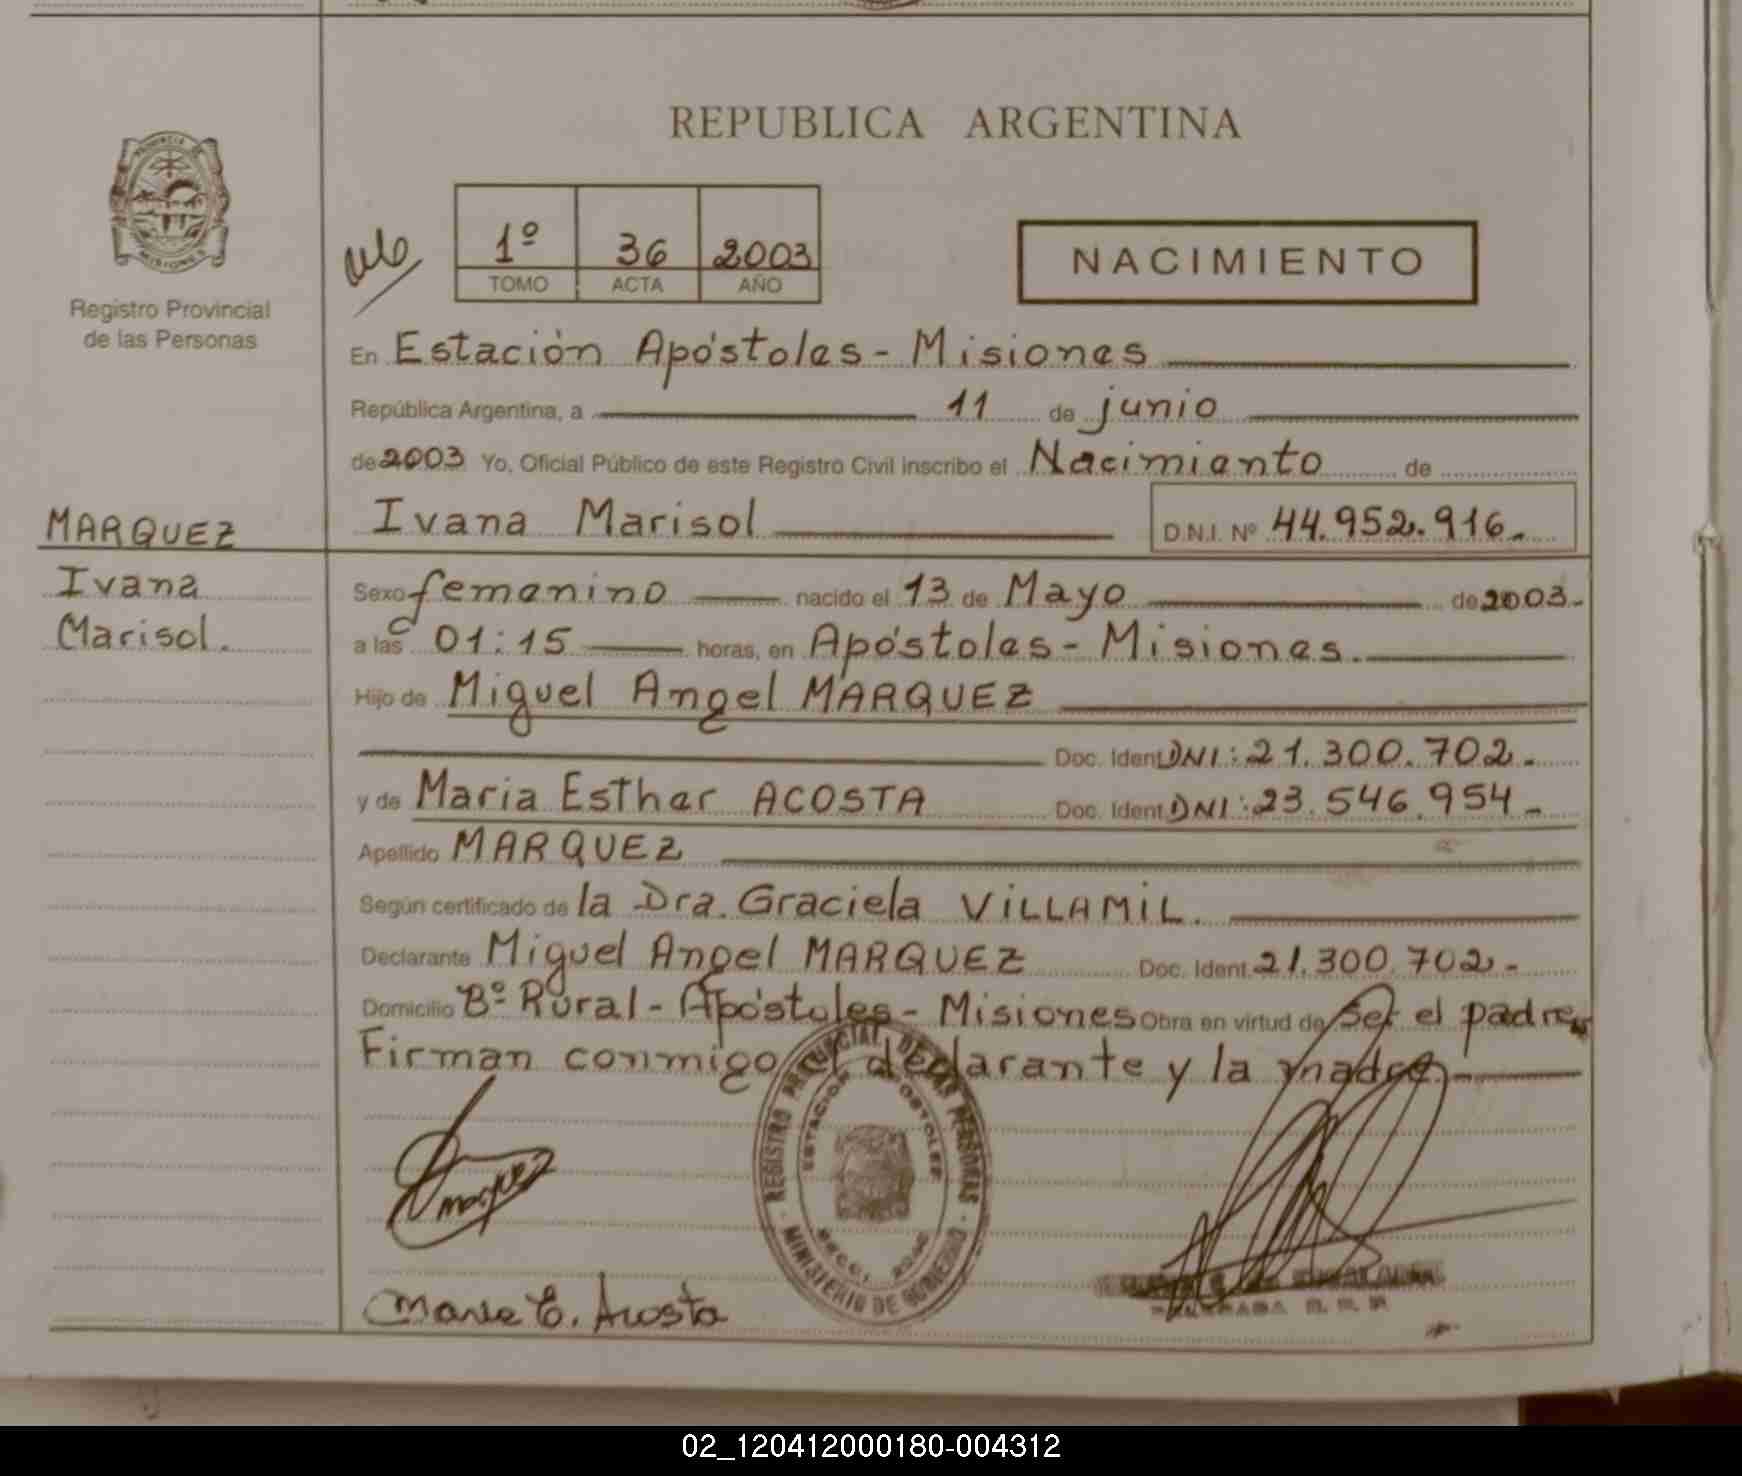 REPUBLICA ARGENTINA
PROVINCIA DE
MISIONES
Registro Provincial
de las Personas
1º 36 2003
TOMO ACTA AÑO
NACIMIENTO
En Estación Apóstoles - Misiones
República Argentina, a 11 de junio
de 2003 Yo, Oficial Público de este Registro Civil inscribo el Nacimiento de
Ivana Marisol D.N.I. Nº 44.952.916.
MARQUEZ
Ivana
Marisol.
Sexo femenino nacido el 13 de Mayo de 2003.
a las 01:15 horas, en Apóstoles - Misiones.
Hijo de Miguel Angel MARQUEZ
Doc. Ident. DNI: 21.300.702.
y de Maria Esther ACOSTA Doc. Ident. DNI: 23.546.954.
Apellido MARQUEZ
Según certificado de la Dra. Graciela VILLAMIL.
Declarante Miguel Angel MARQUEZ Doc. Ident. 21.300.702.
Domicilio Bº Rural - Apóstoles - Misiones Obra en virtud de Ser el padre
Firman conmigo el declarante y la madre.
REGISTRO PROVINCIAL DE LAS PERSONAS
ESTACION APOSTOLES
MINISTERIO DE GOBIERNO
Marquez
Maria E. Acosta
02_120412000180-004312